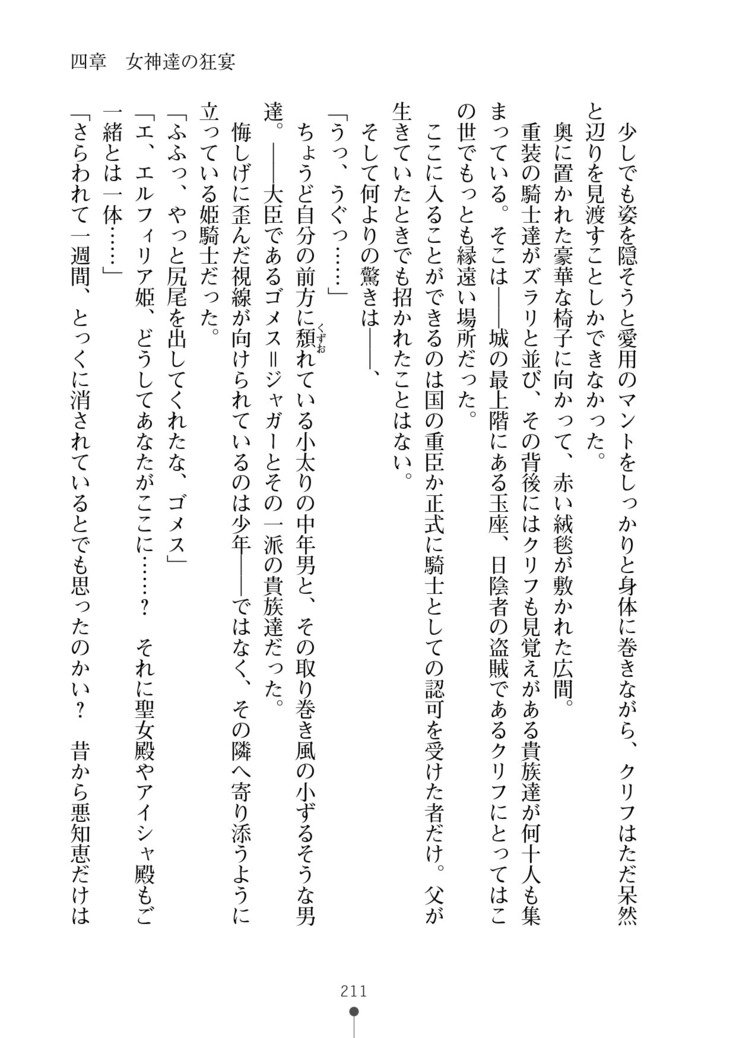 四章　女神達の狂宴
少しでも姿を隠そうと愛用のマントをしっかりと身体に巻きながら、クリフはただ呆然
と辺りを見渡すことしかできなかった。
奥に置かれた豪華な椅子に向かって、赤い絨毯が敷かれた広間。
重装の騎士達がズラリと並び、その背後にはクリフも見覚えがある貴族達が何十人も集
まっている。そこは――城の最上階にある玉座、日陰者の盗賊であるクリフにとってはこ
の世でもっとも縁遠い場所だった。
ここに入ることができるのは国の重臣か正式に騎士としての認可を受けた者だけ。父が
生きていたときでも招かれたことはない。
そして何よりの驚きは――、
「うっ、うぐっ……」
ちょうど自分の前方に頽くずおれている小太りの中年男と、その取り巻き風の小ずるそうな男
達。――大臣であるゴメス＝ジャガーとその一派の貴族達だった。
悔しげに歪んだ視線が向けられているのは少年――ではなく、その隣へ寄り添うように
立っている姫騎士だった。
「ふふっ、やっと尻尾を出してくれたな、ゴメス」
「エ、エルフィリア姫、どうしてあなたがここに……？　それに聖女殿やアイシャ殿もご
一緒とは一体……」
「さらわれて一週間、とっくに消されているとでも思ったのかい？　昔から悪知恵だけは
211